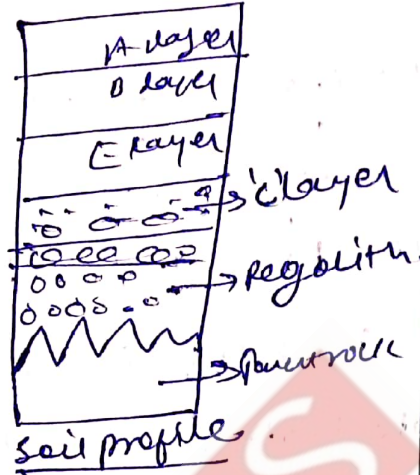 A layer
B layer
E layer
'C' layer
Regolith.
Parentrock
Soil profile